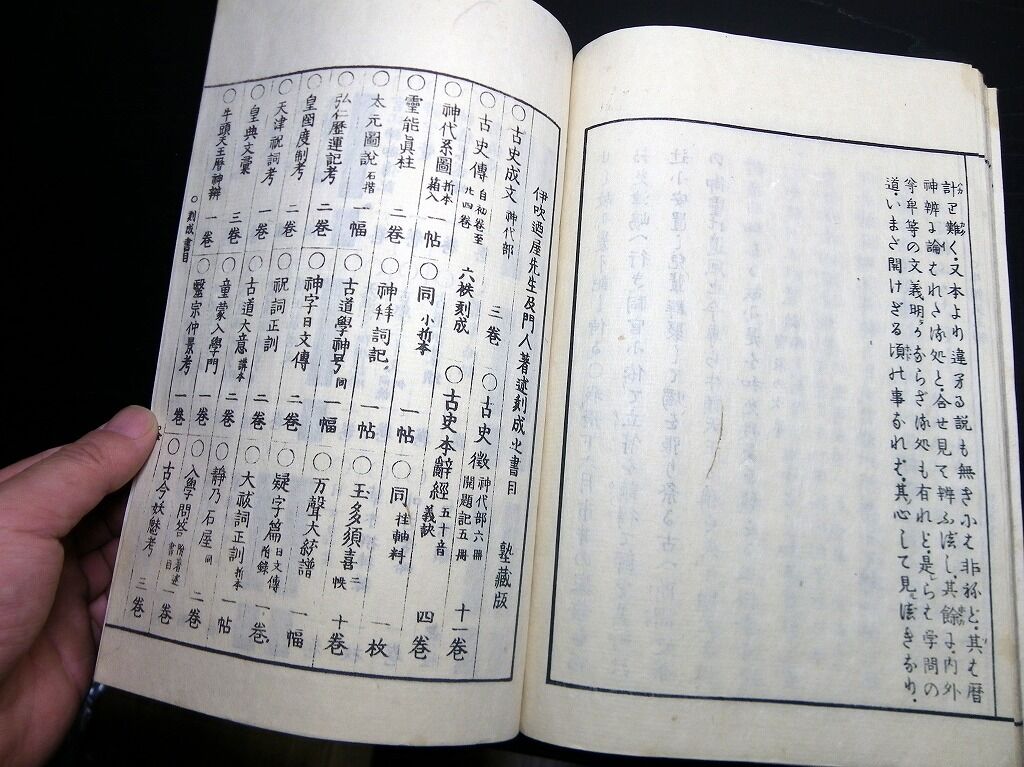 計<ruby>難く、又本よれ違ひる説も無き小も非ねど、其も暦
神辨に論むれたる処と、合せ見て辨ふべし、其餘に内外
等の文義明かならざる処も有れど、是らも学問の
道、いまだ開けざる頃の事なれば、其心して見べきなり、
伊吹廼屋先生及門人著述刻成之書目 塾藏版
○古史成文 神代部 三巻 ○古史徴 神代部六冊 開題記五冊 十一巻
○古史傳 自初巻至廿四巻 六帙刻成 ○古史本辭經 五十音義訣 四巻
○神代系圖 折本箱入 一帖 ○同 小折本 一帖 ○同 挂軸料 一枚
○靈能眞柱 二巻 ○神拜詞記 一帖 ○玉多須喜 二帙 十巻
○太元圖說 石摺 一幅 ○古道學神号 同 一幅 ○万聲大統譜 一幅
○弘仁歷運記考 二巻 ○神字日文傳 二巻 ○疑字篇 日文傳附錄 一巻
○皇國度制考 二巻 ○祝詞正訓 二巻 ○大祓詞正訓 折本 一帖
○天津祝詞考 一巻 ○古道大意 講本 二巻 ○靜乃石屋 同 二巻
○皇典文彙 三巻 ○童蒙入學門 一巻 ○入學問答 附著述書目 一巻
○牛頭天王曆神辨 一巻 ○醫宗仲景考 一巻 ○古今妖魅考 三巻
○刻成書目